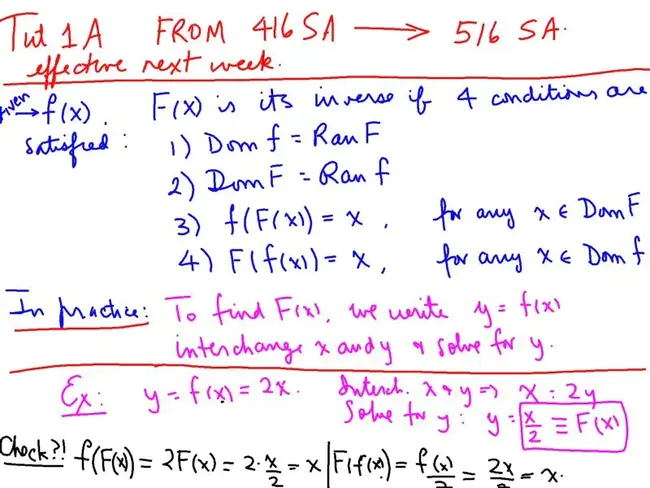 Tut 1A FROM 416 SA → 516 SA.
effective next week.
given → f(x). F(x) is its inverse if 4 conditions are
satisfied: 1) Dom f = Ran F
2) Dom F = Ran f
3) f(F(x)) = x, for any x ∈ Dom F
4) F(f(x)) = x, for any x ∈ Dom f
In practice: To find F(x), we write y = f(x)
interchange x and y & solve for y.
Ex: y = f(x) = 2x. Interch. x & y => x = 2y
Solve for y: y = x/2 ≡ F(x)
Check?! f(F(x)) = 2F(x) = 2·x/2 = x | F(f(x)) = f(x)/2 = 2x/2 = x.